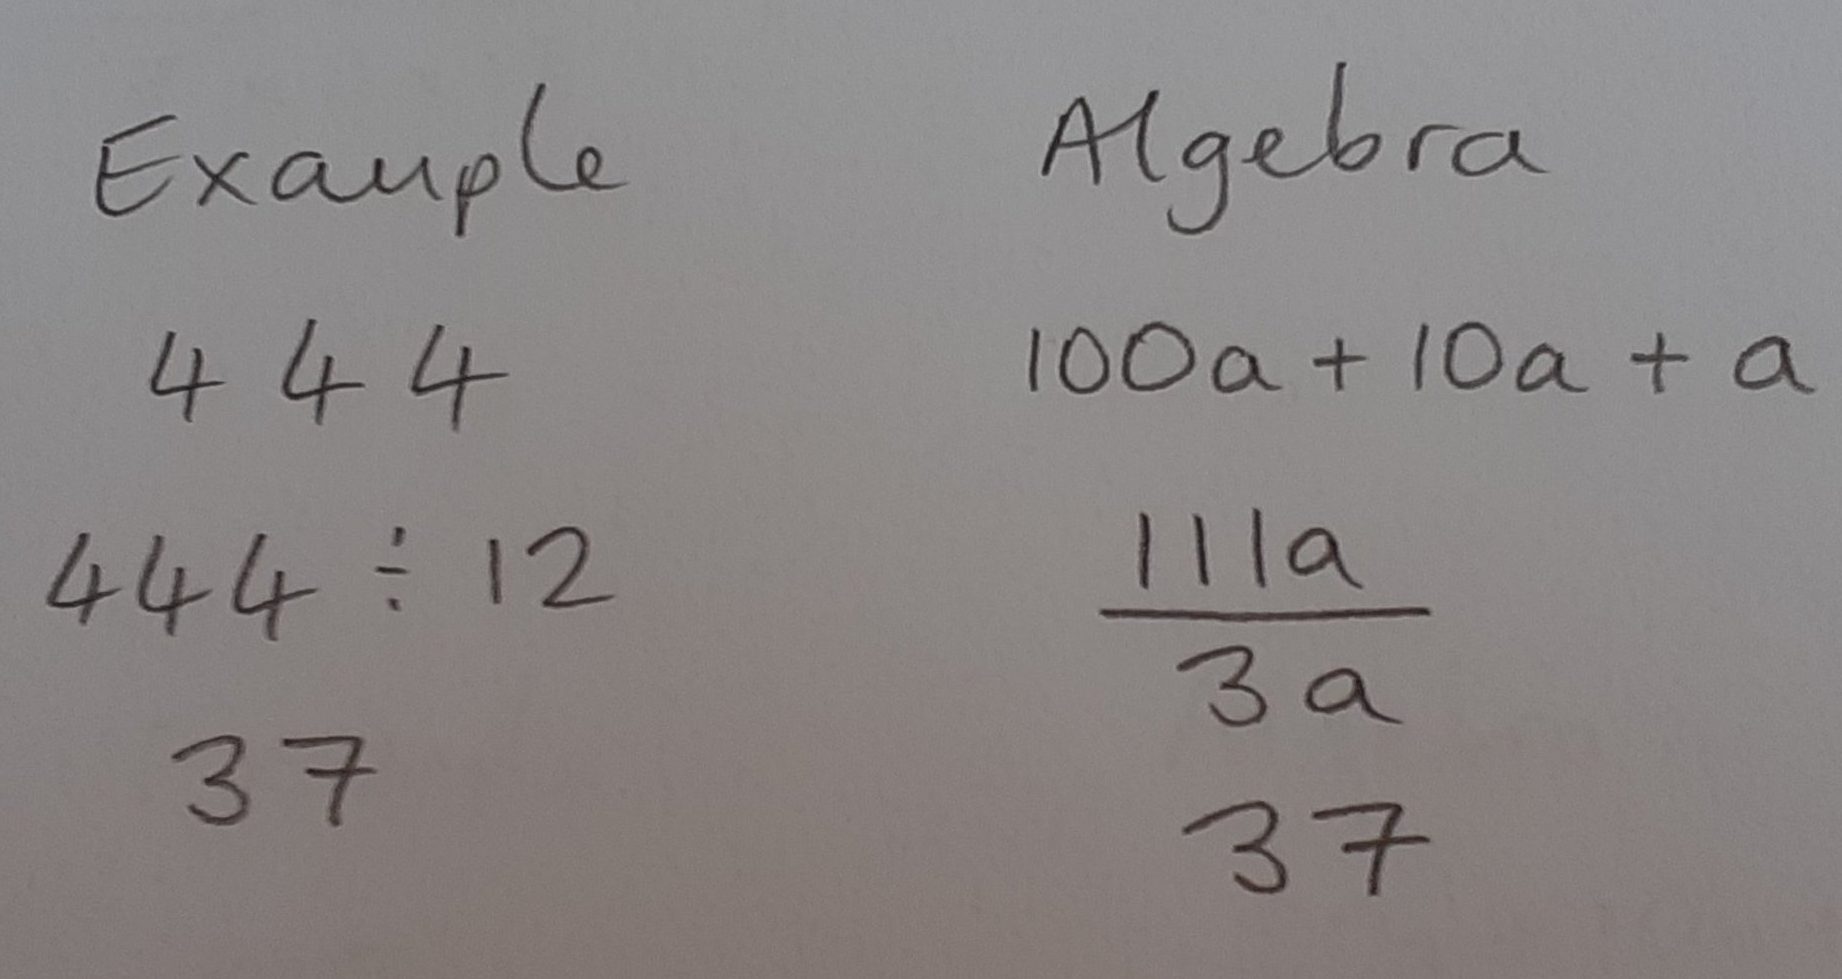 Example
444
444 ÷ 12
37
Algebra
100a + 10a + a
111a
3a
37